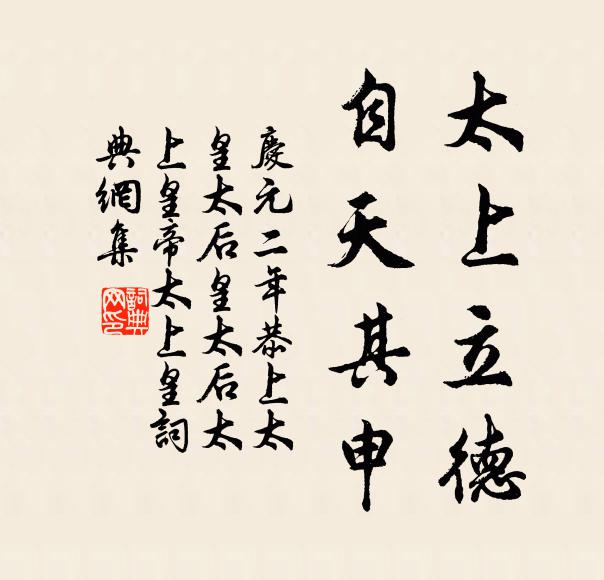 太上立德
自天其申
慶元二年恭上太
皇太后皇太后太
上皇帝太上皇詞
典網集
詞典
网印